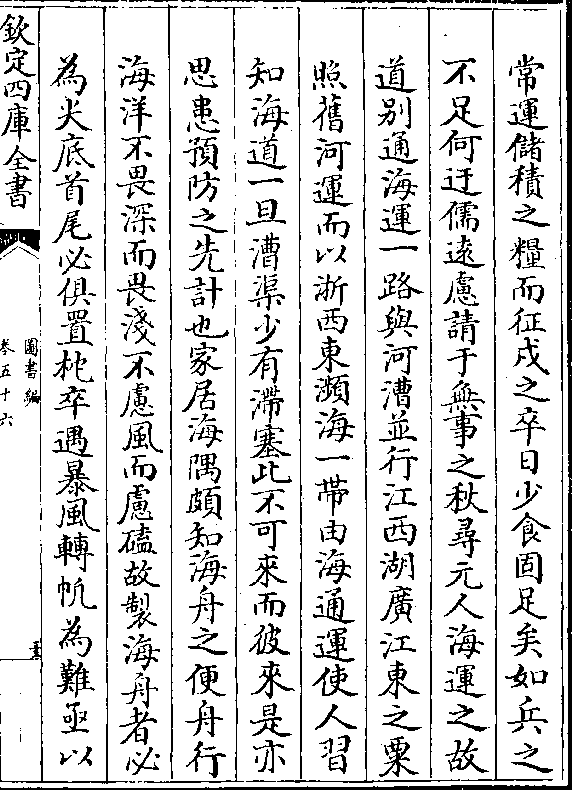 常運儲積之糧而征戍之卒日少食固足矣如兵之
不足何迂儒遠慮請于無事之秋尋元人海運之故
道别通海運一路與河漕並行江西湖廣江東之粟
照舊河運而以浙西東瀕海一帶由海通運使人習
知海道一旦漕渠少有滯塞此不可來而彼來是亦
思患預防之先計也家居海隅頗知海舟之便舟行
海洋不畏深而畏淺不慮風而慮磕故製海舟者必
為尖底首尾必俱置柁卒遇暴風轉帆為難亟以
欽定四庫全書
圖書編
卷五十六